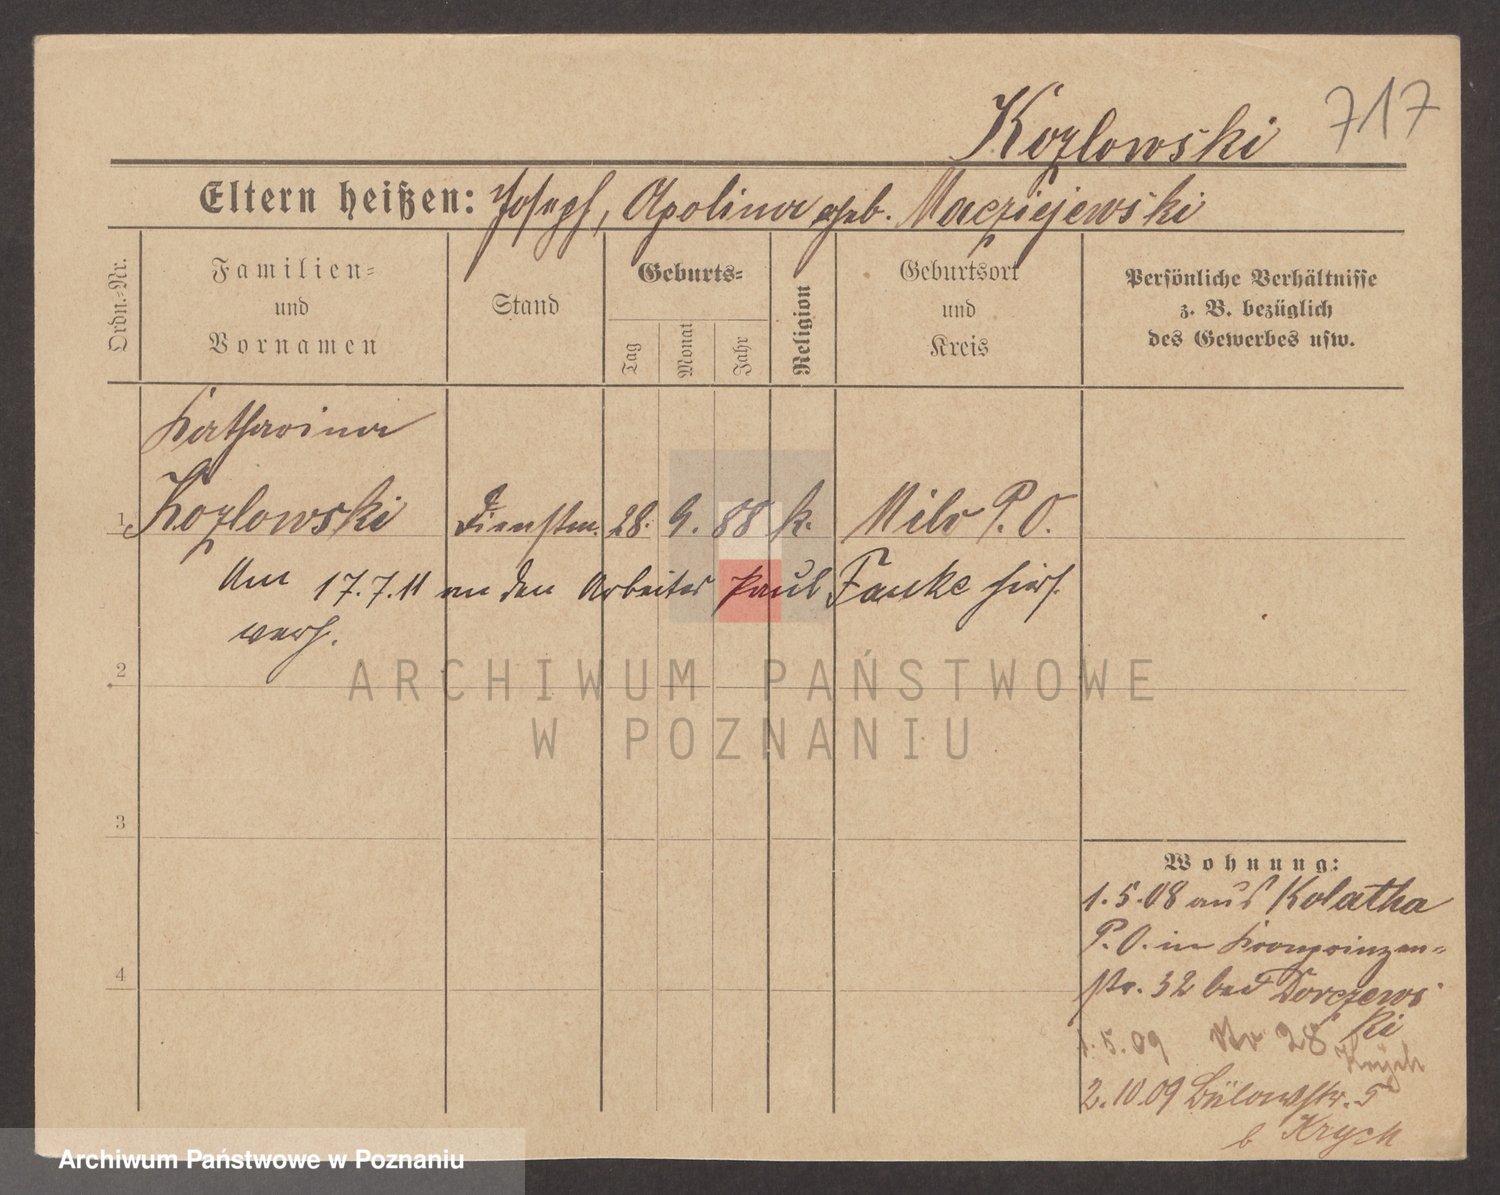 717
Kozlowski
Eltern heißen: Joseph, Apolina geb. Macziejewski
Ordn.-Nr.
Familien-
und
Vornamen
Stand
Geburts-
Tag
Monat
Jahr
Religion
Geburtsort
und
Kreis
Persönliche Verhältnisse
z. B. bezüglich
des Gewerbes usw.
Katharina
1 Kozlowski Dienstm. 28. 9. 88 k. Milo P. O.
Am 17.7.11 an den Arbeiter Paul Fanke hier
verh.
2
3
4
Wohnung:
1.5.08 aus Kolatka
P. O. in Kronprinzen-
str. 32 bei Dorczews
ki
1.5.09 Nr 28 Krych
2.10.09 Bülowstr. 5
b Krych
ARCHIWUM PAŃSTWOWE
W POZNANIU
Archiwum Państwowe w Poznaniu